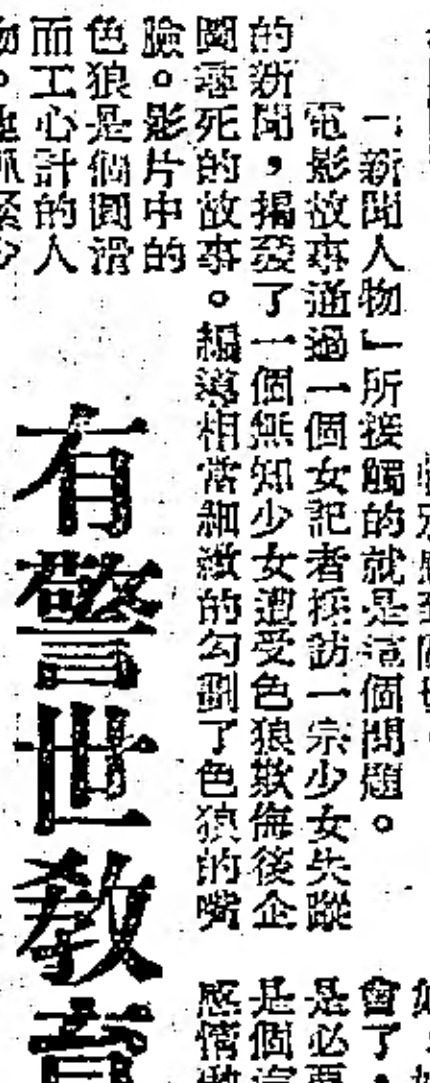 「新聞人物」所接觸的就是這個問題。
電影故事通過一個女記者採訪一宗少女失蹤
的新聞，揭發了一個無知少女遭受色狼欺侮後企
圖尋死的故事。編導相當細緻的勾劃了色狼的嘴
臉。影片中的
色狼是個圓滑
而工心計的人
有警世教育
會了，
是必要
是個
感情